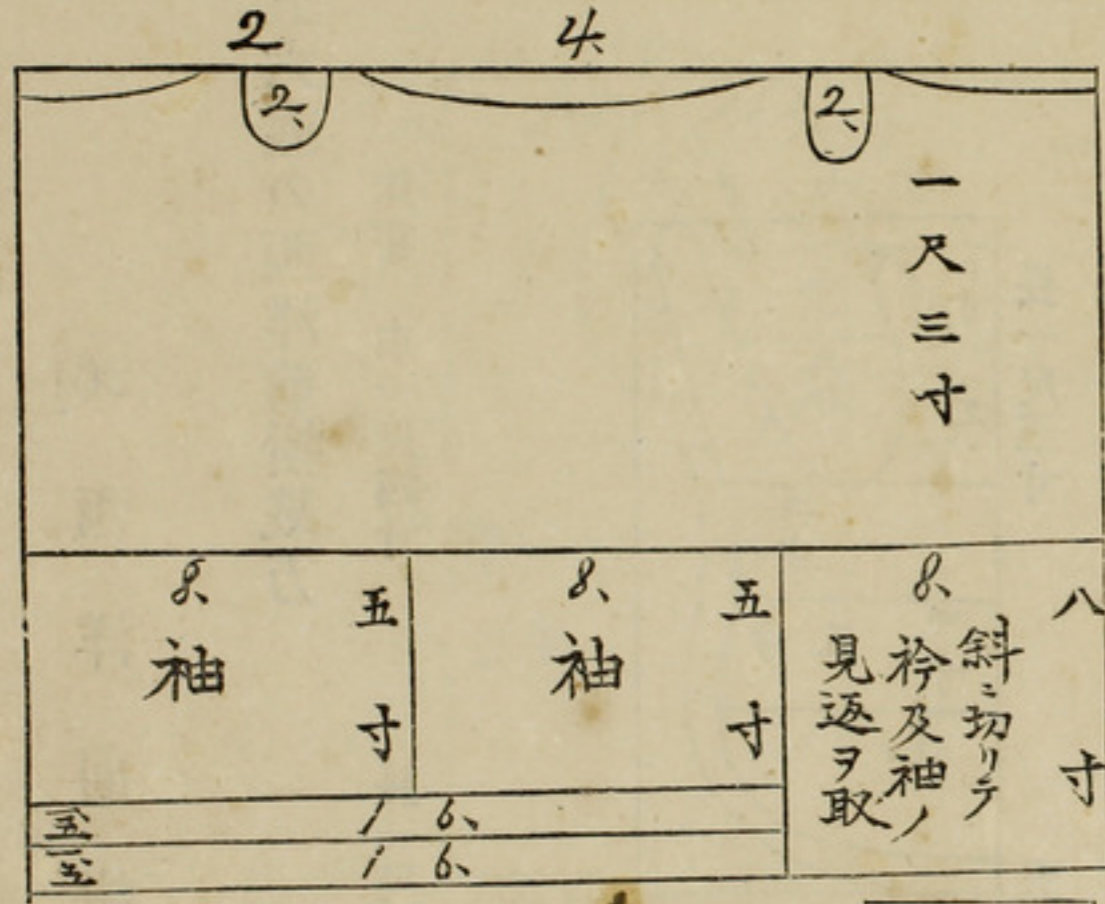 2
4、
2、
2、
一尺三寸
8、
五寸
袖
8、
五寸
袖
8、
八寸
斜ニ切リテ
衿及袖ノ
見返ヲ取
1 6、
1 6、